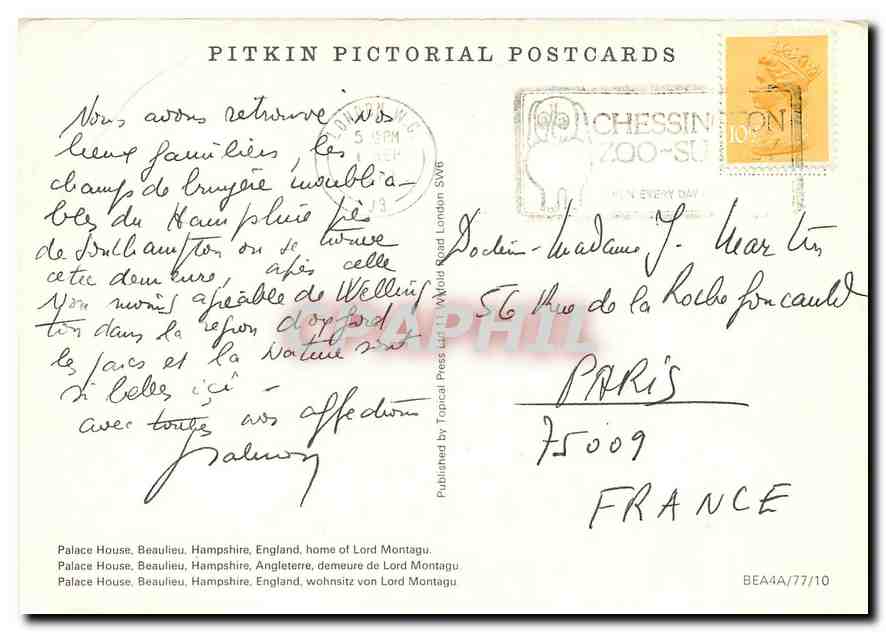 PITKIN PICTORIAL POSTCARDS
Nous avons retrouvé nos
lieux familiers, les
champs de bruyère inoublia-
bles du Hampshire près
de Southampton où se trouve
cette demeure, après celle
non moins agréable de Welling-
ton dans la région d'oxford
les parcs et la nature sont
si belles ici -
avec toutes nos affections
LONDON W.C.
5 15 PM
SEP
CHESSINGTON
ZOO-SU
EVERY DAY
10
Docteur - Madame J. Martin
56 Rue de la Rochefoucauld
PARIS
75009
FRANCE
Published by Topical Press Ltd 11 Road London SW6
CPAPHIL
Palace House, Beaulieu, Hampshire, England, home of Lord Montagu.
Palace House, Beaulieu, Hampshire, Angleterre, demeure de Lord Montagu.
Palace House, Beaulieu, Hampshire, England, wohnsitz von Lord Montagu.
BEA4A/77/10